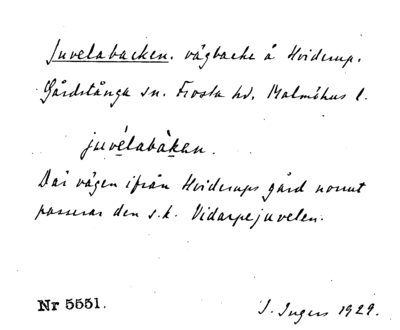 Juvelabacken. vägbacke å Hviderup.
Gårdstånga sn. Frosta hd. Malmöhus l.
juvélabàkan.
Där vägen ifrån Hviderups gård norrut
passerar den s.k. Vidarpejuvelen.
Nr 5551.
I. Ingers 1929.